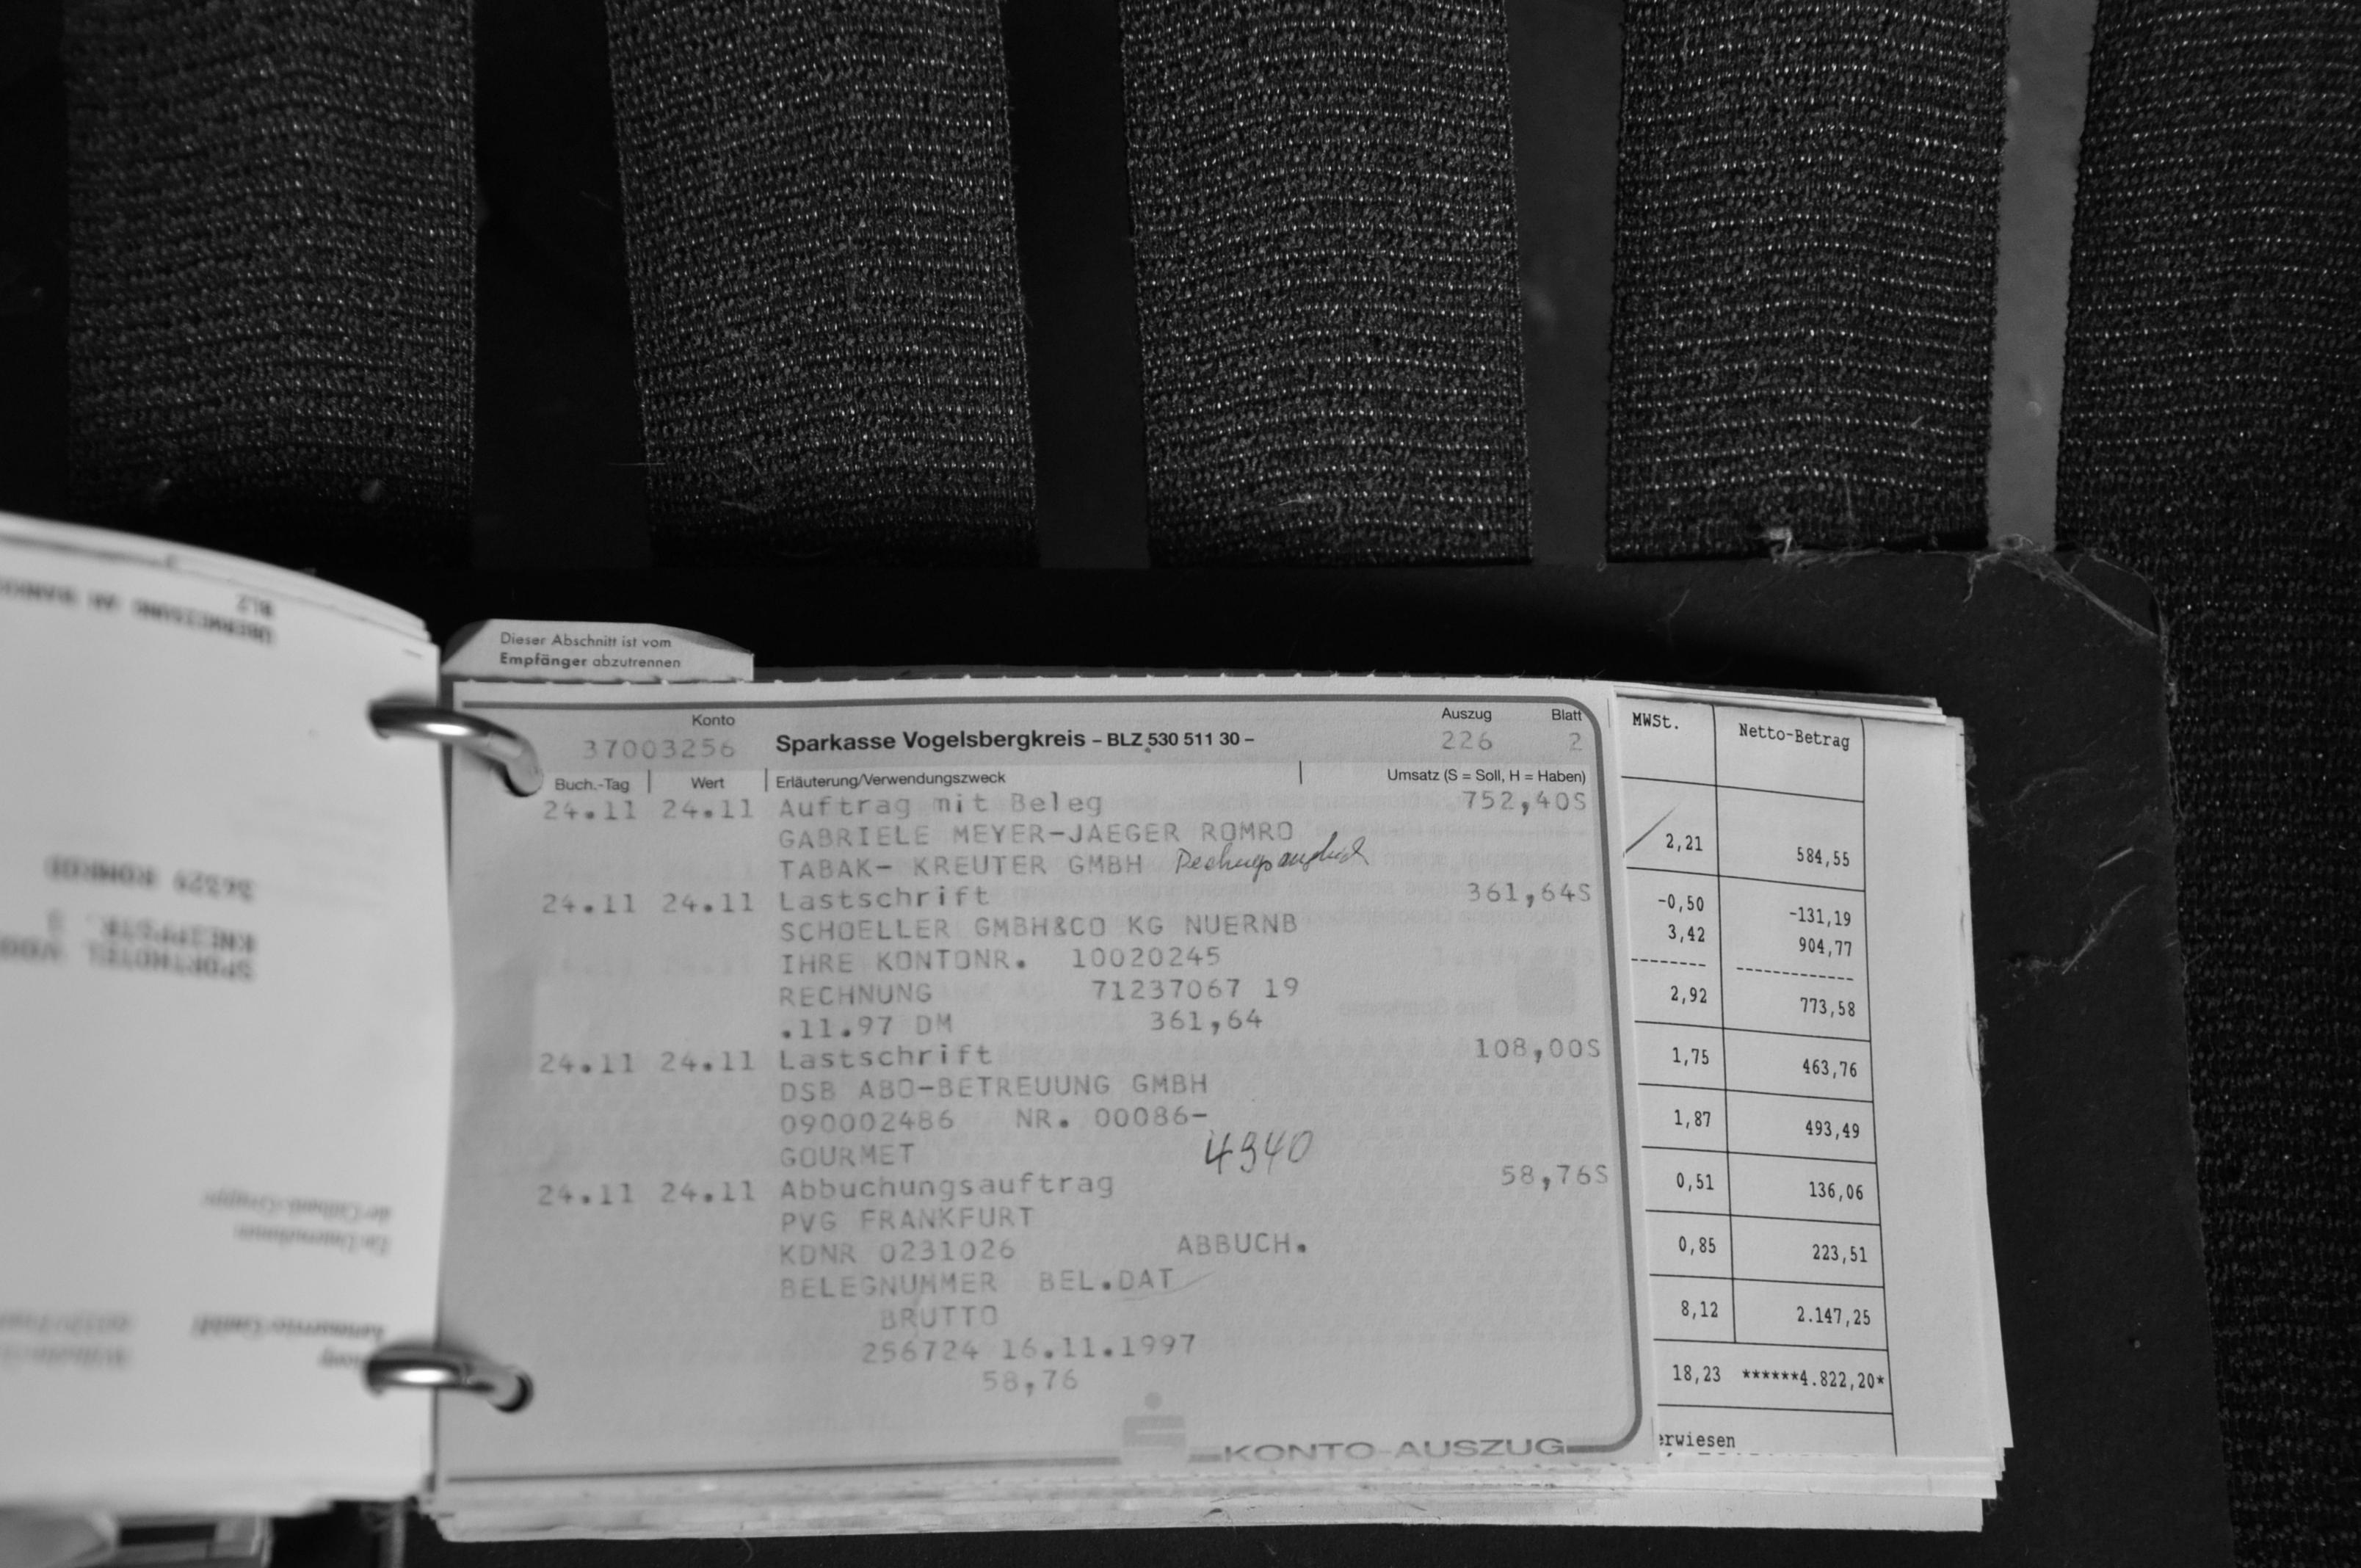 Dieser Abschnitt ist vom
Empfänger abzutrennen
Konto
Auszug Blatt
37003256 Sparkasse Vogelsbergkreis – BLZ 530 511 30 – 226 2
Buch.-Tag Wert Erläuterung/Verwendungszweck Umsatz (S = Soll, H = Haben)
24.11 24.11 Auftrag mit Beleg 752,40S
GABRIELE MEYER-JAEGER ROMRO
TABAK- KREUTER GMBH
24.11 24.11 Lastschrift 361,64S
SCHOELLER GMBH&CO KG NUERNB
IHRE KONTONR. 10020245
RECHNUNG 71237067 19
.11.97 DM 361,64
24.11 24.11 Lastschrift 108,00S
DSB ABO-BETREUUNG GMBH
090002486 NR. 00086-
GOURMET 4940
24.11 24.11 Abbuchungsauftrag 58,76S
PVG FRANKFURT
KDNR 0231026 ABBUCH.
BELEGNUMMER BEL.DAT
BRUTTO
256724 16.11.1997
58,76
KONTO-AUSZUG
MWSt. Netto-Betrag
2,21 584,55
-0,50 -131,19
3,42 904,77
2,92 773,58
1,75 463,76
1,87 493,49
0,51 136,06
0,85 223,51
8,12 2.147,25
18,23 ******4.822,20*
erwiesen
BLZ
36329 ROMROD
KNEIPPSTR. 3
SPORTHOTEL